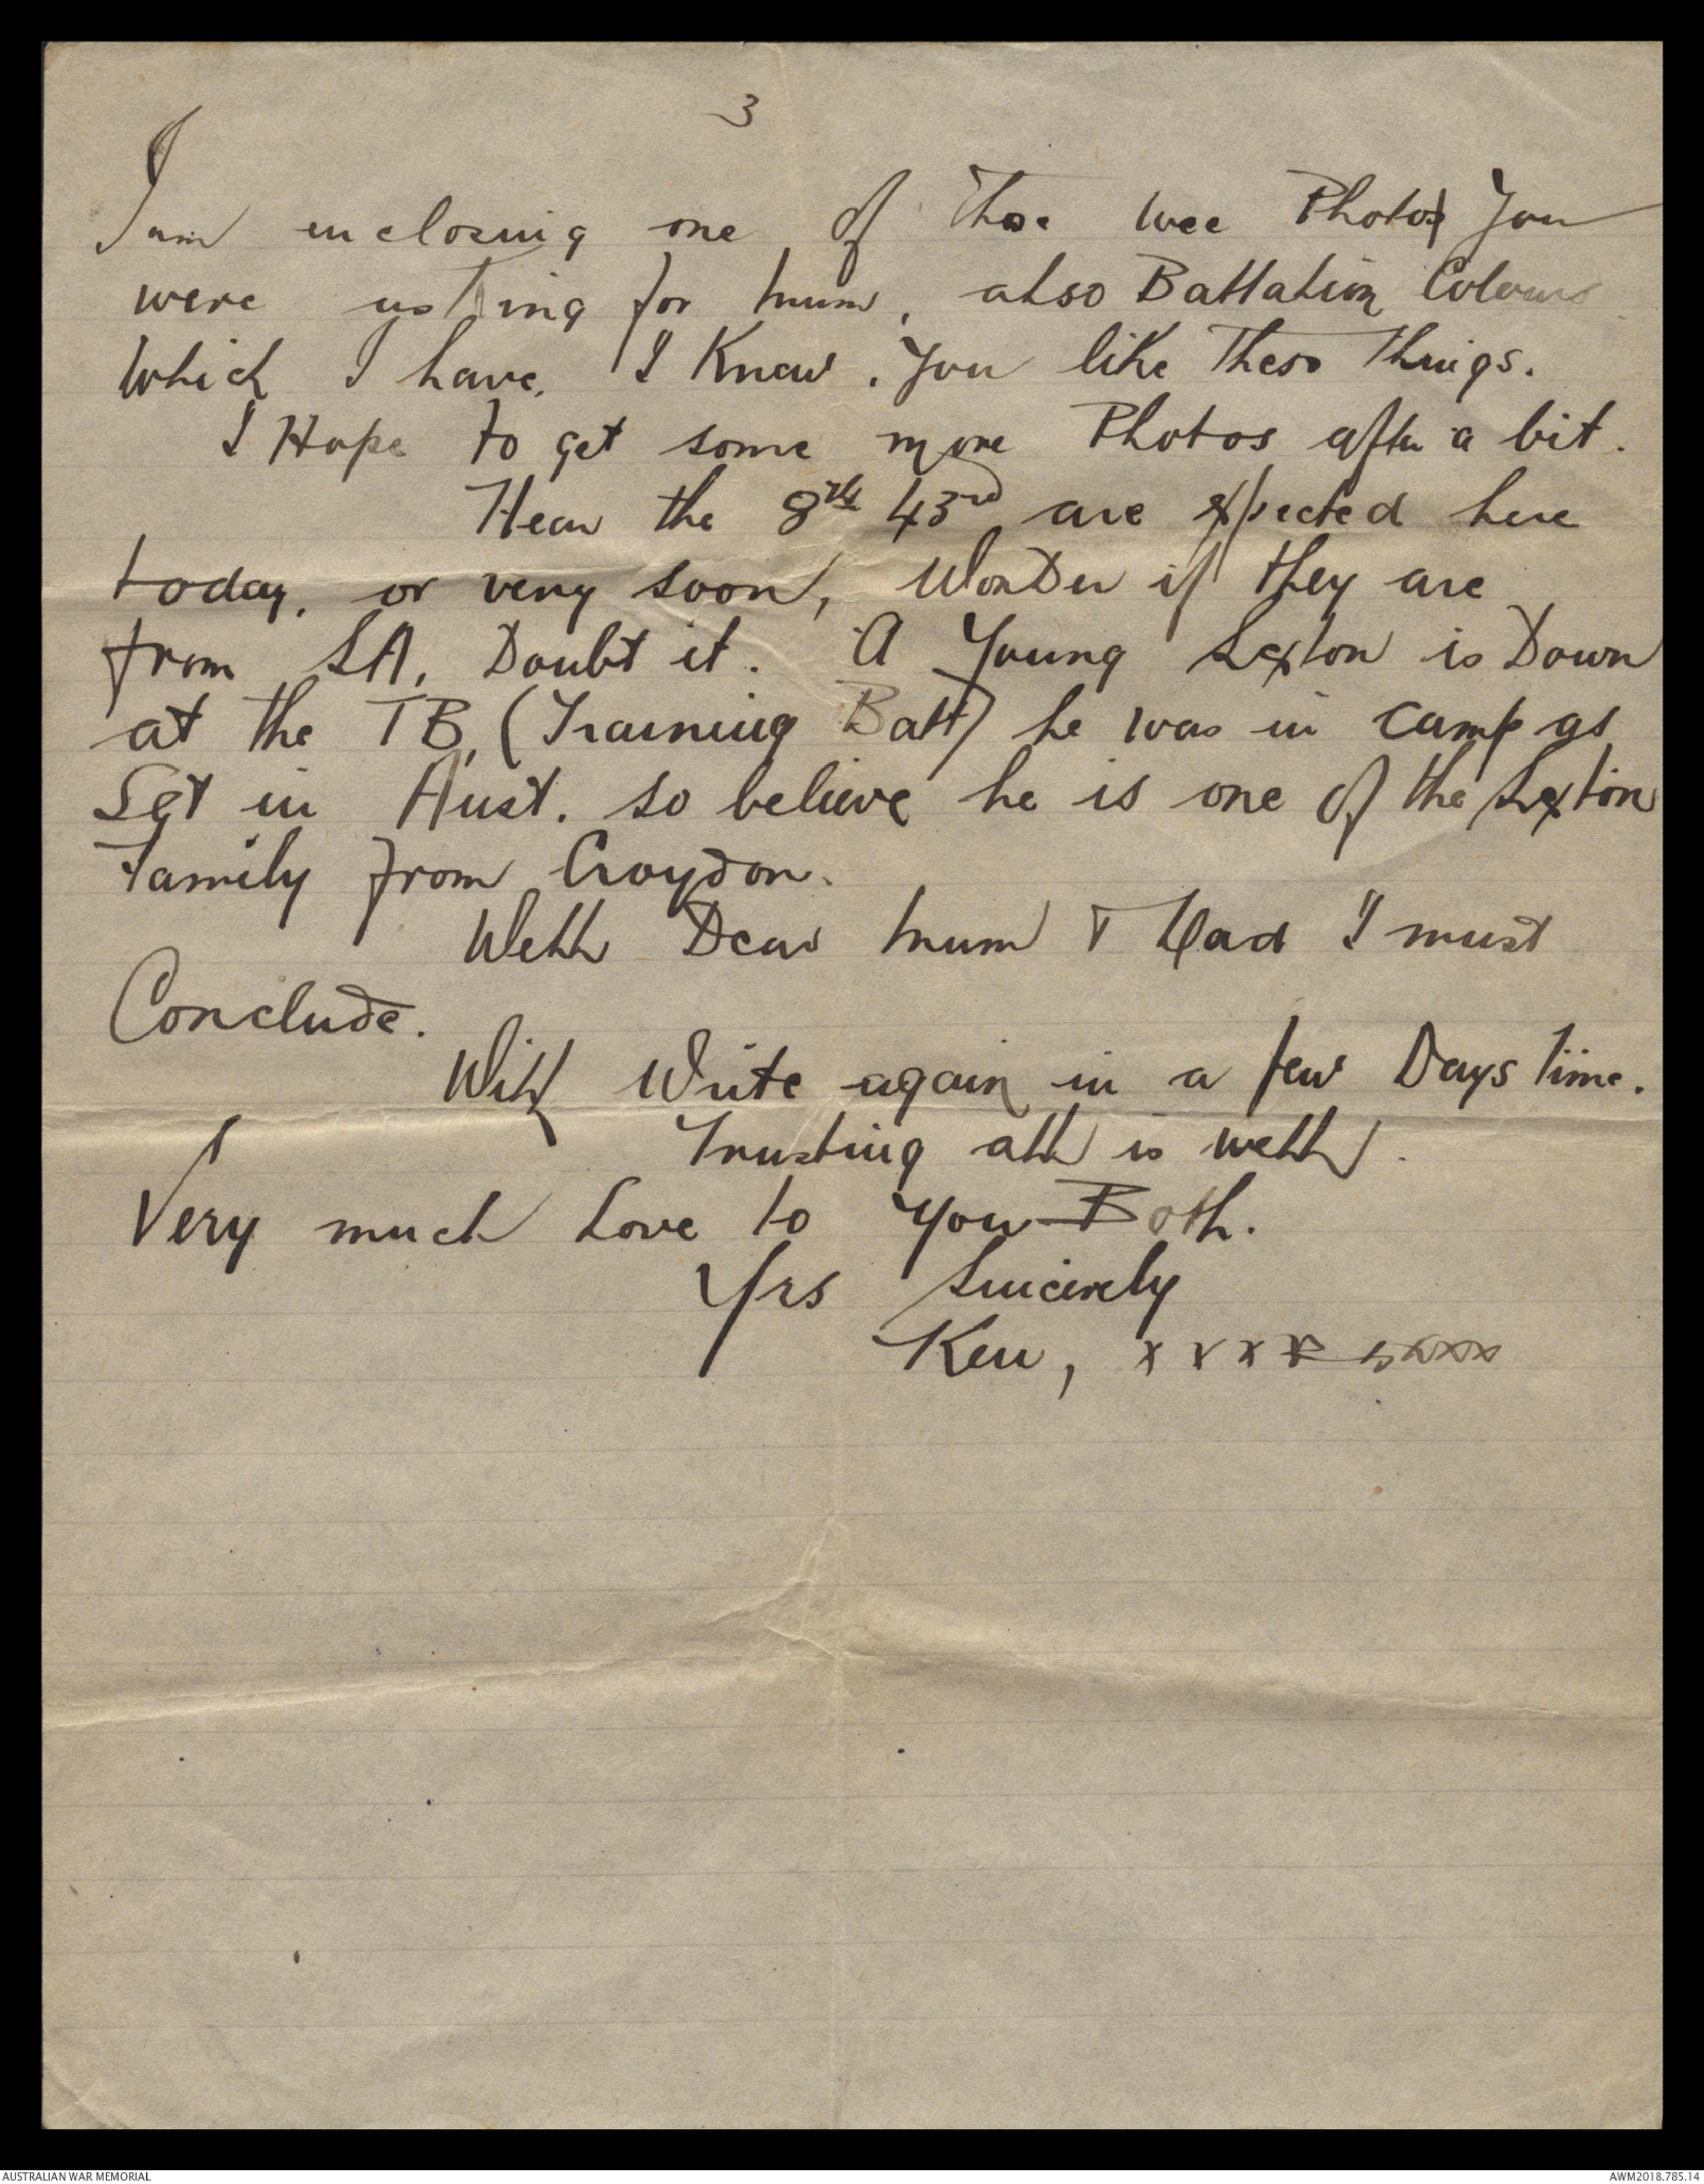 3
I am enclosing one of those wee Photos You
were asking for mum, also Battalion Colours
Which I have. I Know. You like These Things.
I Hope to get some more Photos after a bit.
Hear the 8th 43rd are expected here
today, or very soon, WonDer if they are
from SA, Doubt it. A Young Sexton is Down
at the TB, (Training Batt) he was in camp as
Sgt in Aust. so believe he is one of the Sexton
Family from Croydon.
Well Dear mum & Dad I must
Conclude.
Will Write again in a few Days time.
Trusting all is well.
Very much Love to You Both.
Yrs Sincerely
Ken, x x x x xxxx
AUSTRALIAN WAR MEMORIAL
AWM2018.785.14